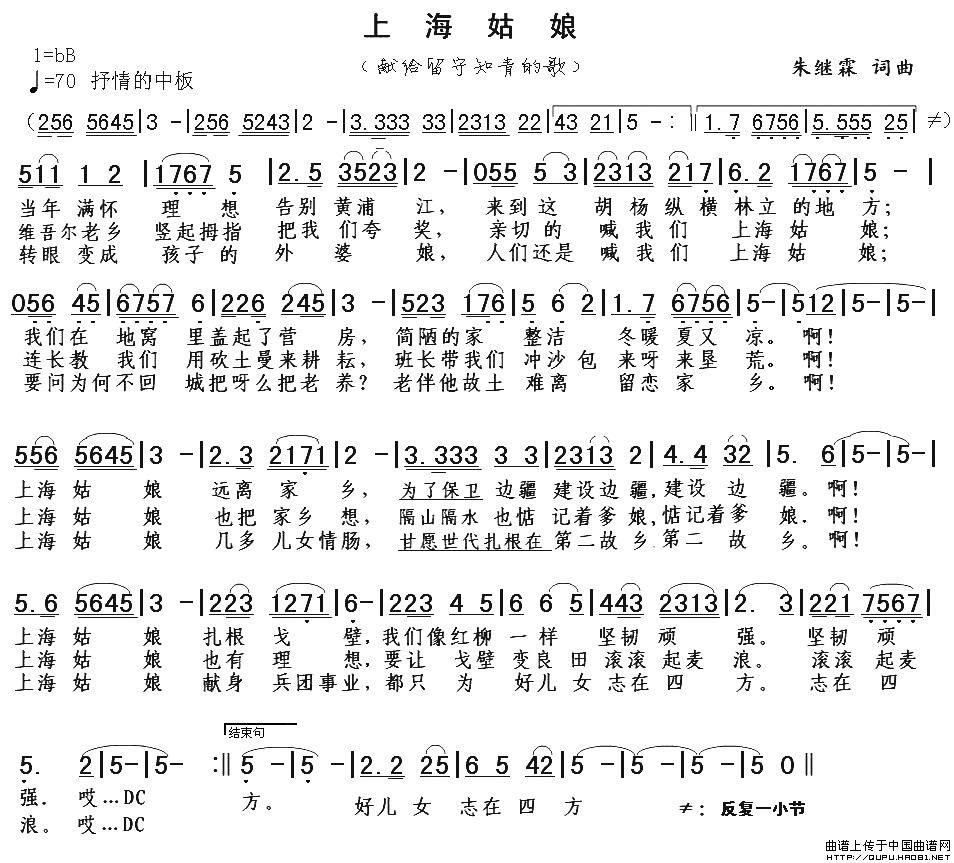 上海姑娘
1=bB
（献给留守知青的歌）
♩=70 抒情的中板
朱继霖 词曲
（256 5645|3 -|256 5243|2 -|3.333 33|2313 22|43 21|5 -:‖1.7 6756|5.555 25|≠）
511 1 2|1767 5|2.5 3523|2 -|055 5 3|2313 217|6.2 1767|5 -|
当年 满怀 理 想 告别 黄浦 江，来到这 胡杨纵横 林立 的地 方；
维吾尔老乡 竖起拇指 把我 们夸 奖，亲切的 喊我们 上海姑 娘；
转眼 变成 孩子的 外 婆 娘，人们还是 喊我们 上海姑 娘；
056 45|6757 6|226 245|3 -|523 176|5 6 2|1.7 6756|5-|512|5-|5-|
我们在 地窝 里盖起了营 房，简陋的家 整洁 冬暖 夏又 凉。啊！
连长教 我们 用砍土曼来耕 耘，班长带我们 冲沙包 来呀来垦 荒。啊！
要问为何不回 城把呀么把老 养？老伴他故土 难离 留恋家 乡。啊！
556 5645|3 -|2.3 2171|2 -|3.333 3 3|2313 2|4.4 32|5. 6|5-|5-|
上海 姑 娘 远离 家 乡，为了保卫 边疆 建设边疆，建设 边 疆。啊！
上海 姑 娘 也把 家乡 想，隔山隔水 也惦 记着爹娘，惦记着爹 娘．啊！
上海 姑 娘 几多 儿女情肠，甘愿世代扎根在 第二故乡．第二 故 乡。啊！
5.6 5645|3 -|223 1271|6-|223 4 5|6 6 5|443 2313|2. 3|221 7567|
上海 姑 娘 扎根 戈 壁，我们像红柳 一样 坚韧 顽 强。坚韧 顽
上海 姑 娘 也有 理 想，要让 戈壁 变良 田滚滚 起麦 浪。滚滚 起麦
上海 姑 娘 献身 兵团事业，都只 为 好儿 女志在四 方。志在 四
结束句
5. 2|5-|5- :‖5 -|5 -|2.2 25|6 5 42|5 -|5 -|5 -|5 0‖
强．哎…DC 方。好儿 女 志在 四 方 ≠：反复一小节
浪。哎…DC
曲谱上传于中国曲谱网
HTTP://QUPU.HAO81.NET